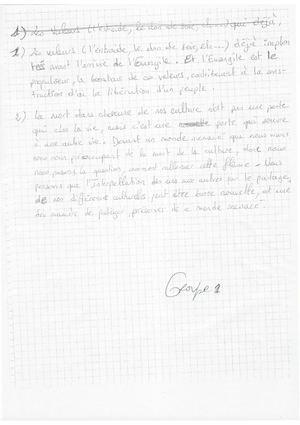 1) Les valeurs (l'entraide, le don de soi, etc...) qui déjà
1) Les valeurs (l'entraide, le don de soi, etc...) déjà implan
tés avant l'arrivé de l'Évangile. Et l'Évangile est le
propulseur, la de ces valeurs, à la cons-
truction d'où la libération d'un peuple.
2) La mort dans chacune de nos culture n'est pas une porte
qui clos la vie, mais c'est une porte qui ouvre
à une autre vie. Devant un monde menacé que nous vivons
nous nous préoccupant de la mort de la culture, donc nous
nous posons la question, comment rallumer cette flamme. Nous
pensons que l'Interpellation des uns aux autres sur le partage,
de nos différente culturelles peut être bonne nouvelle, et une
des manière de protéger, préserver de ce monde menacé.
Groupe 1